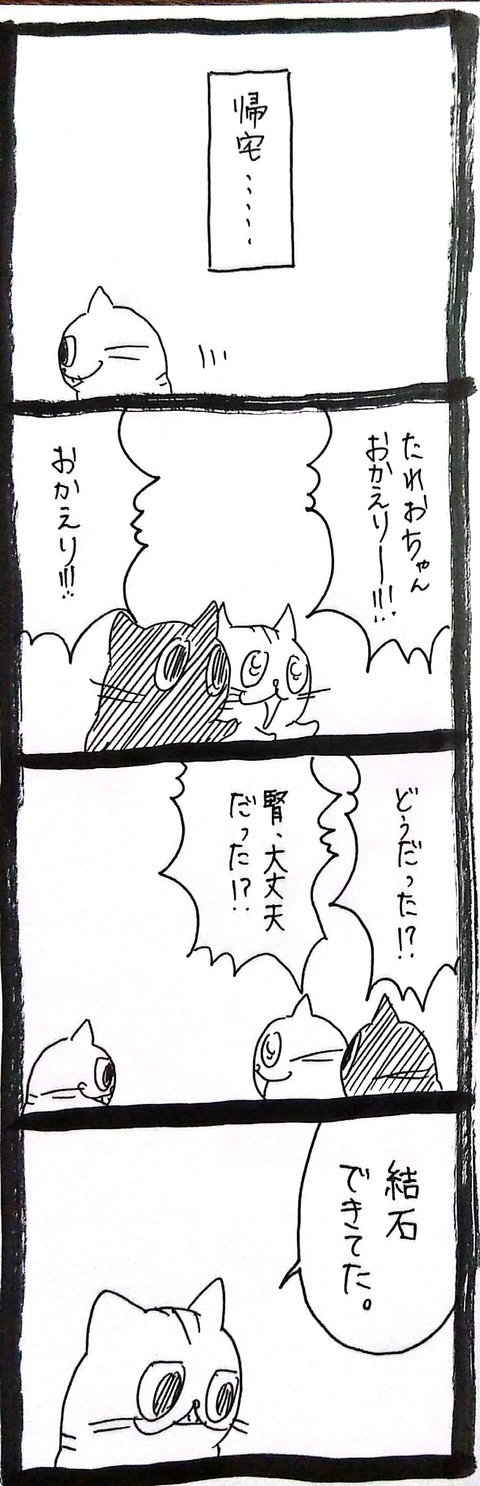 帰宅……
たれおちゃん
おかえりー!!!
おかえり!!!
どうだった!?
腎、大丈夫
だった!?
結石
できてた。